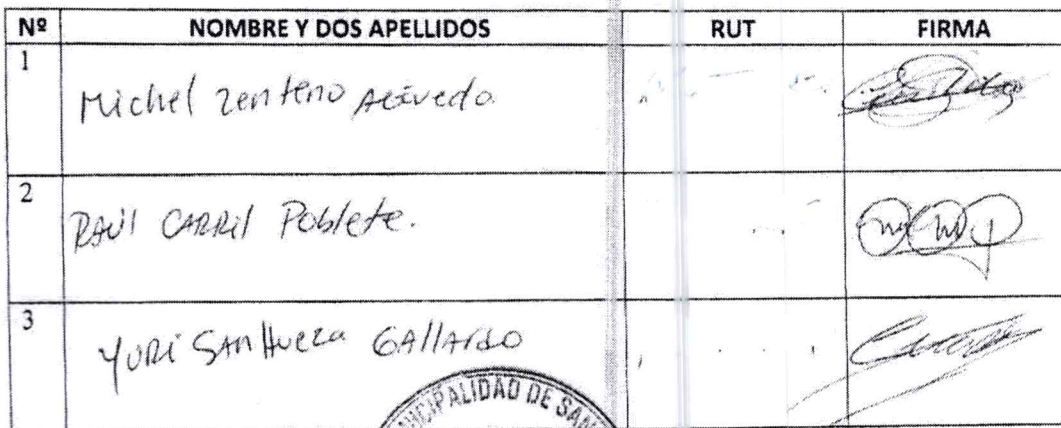 Nº NOMBRE Y DOS APELLIDOS RUT FIRMA
1 Michel Zenteno Acevedo.
2 RAÚl CARRil Poblete.
3 YURi SANHUEZA GAllARDO
MUNICIPALIDAD DE SAN